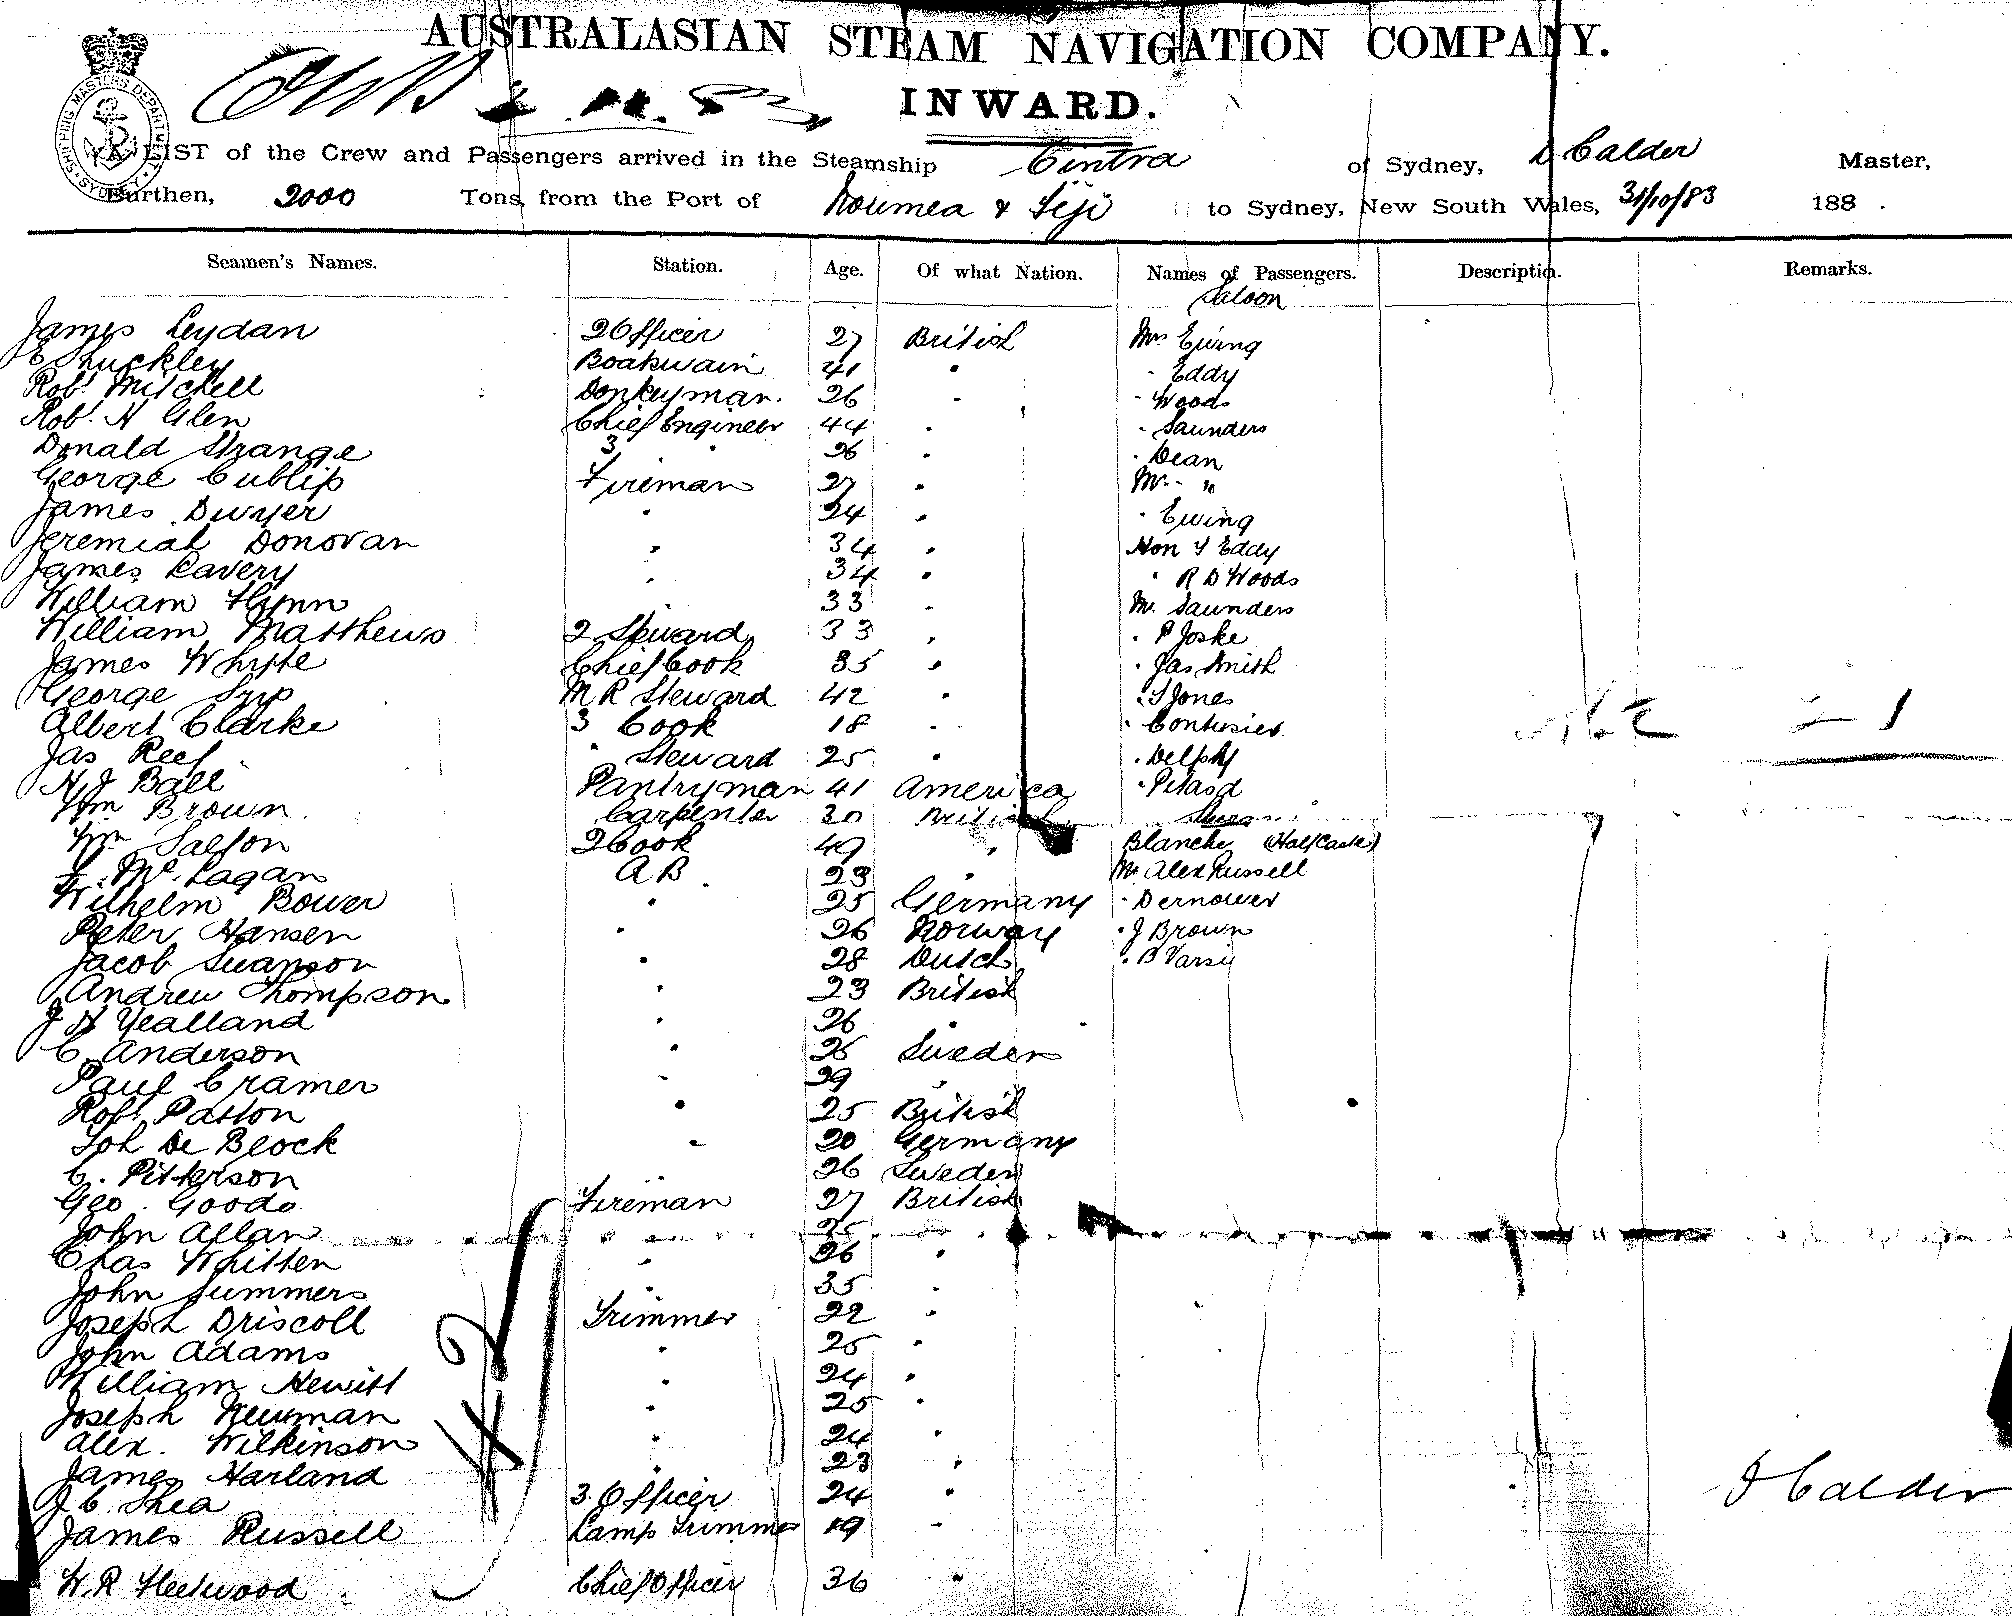 AUSTRALASIAN STEAM NAVIGATION COMPANY.
SHIPPING MASTER'S DEPARTMENT SYDNEY
INWARD.
A LIST of the Crew and Passengers arrived in the Steamship Cintra of Sydney, D Calder Master,
Burthen, 2000 Tons from the Port of Noumea & Fiji to Sydney, New South Wales, 31/10/83 188 .
Seamen's Names. Station. Age. Of what Nation. Names of Passengers. Description. Remarks.
Saloon
James Leydan 2 Officer 27 British Mrs Ewing
E Shuckley Boatswain 41 " " Eddy
Robt Mitchell Donkeyman. 26 " " Woods
Robt H Glen Chief Engineer 44 " " Saunders
Donald Strange 3 " 26 " " Dean
George Cublip Fireman 27 " Mr "
James Dwyer " 24 " " Ewing
Jeremiah Donovan " 34 " Hon Y Eddy
James Lavery " 34 " " R D Woods
William Flynn " 33 " Mr. Saunders
William Matthews 2 Steward 33 " " P Joske
James Whyte Chief Cook 35 " " Jas Smith
George Syp M R Steward 42 " " S Jones
Albert Clarke 3 Cook 18 " "
Jas Reef " Steward 25 " " Delphy
H J Ball Pantryman 41 America " Pitard
Wm Brown Carpenter 30 British
Wm Salton 2 Cook 49 " Blanche (Half Caste)
Mc. Lagan A B 23 " Mr Alex Russell
Wilhelm Bower " 25 Germany " Dernower
Peter Hansen " 26 Norway " J Brown
Jacob Swanson " 28 Dutch " B Varsi
Andrew Thompson " 23 British
J H Yealland " 26 "
C. Anderson " 26 Sweden
Paul Cramer " 29 "
Robt Patton " 25 British
Joh De Block " 20 Germany
C. Pitterson " 26 Sweden
Geo. Goods Fireman 27 British
John Allan " 25 "
Chas Whitten " 26 "
John Summers " 35 "
Joseph Driscoll Trimmer 22 "
John Adams " 25 "
William Hewitt " 24 "
Joseph Newman " 25 "
Alex. Wilkinson " 24 "
James Harland " 23 "
J C Shea 3 Officer 24 "
James Russell Lamp Trimmer 19 "
W. R Fleetwood Chief Officer 36 "
D Calder